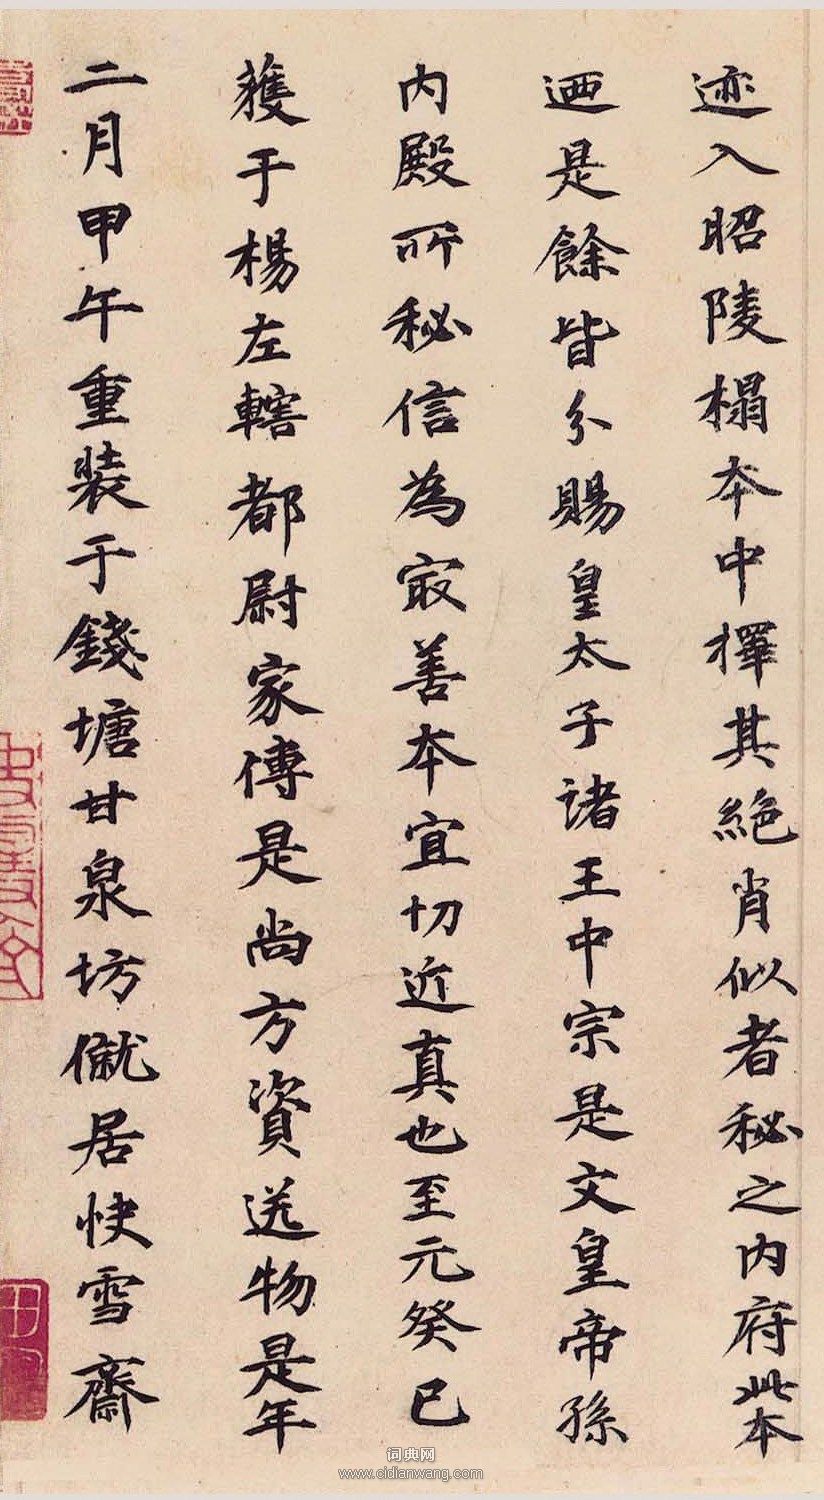 迹入昭陵榻本中擇其絶肖似者秘之内府此本
迺是餘皆分賜皇太子諸王中宗是文皇帝孫
内殿所秘信為㝡善本宜切近真也至元癸巳
獲于楊左轄都尉家傳是尚方資送物是年
二月甲午重装于錢塘甘泉坊僦居快雪齋
词典网
www.cidianwang.com